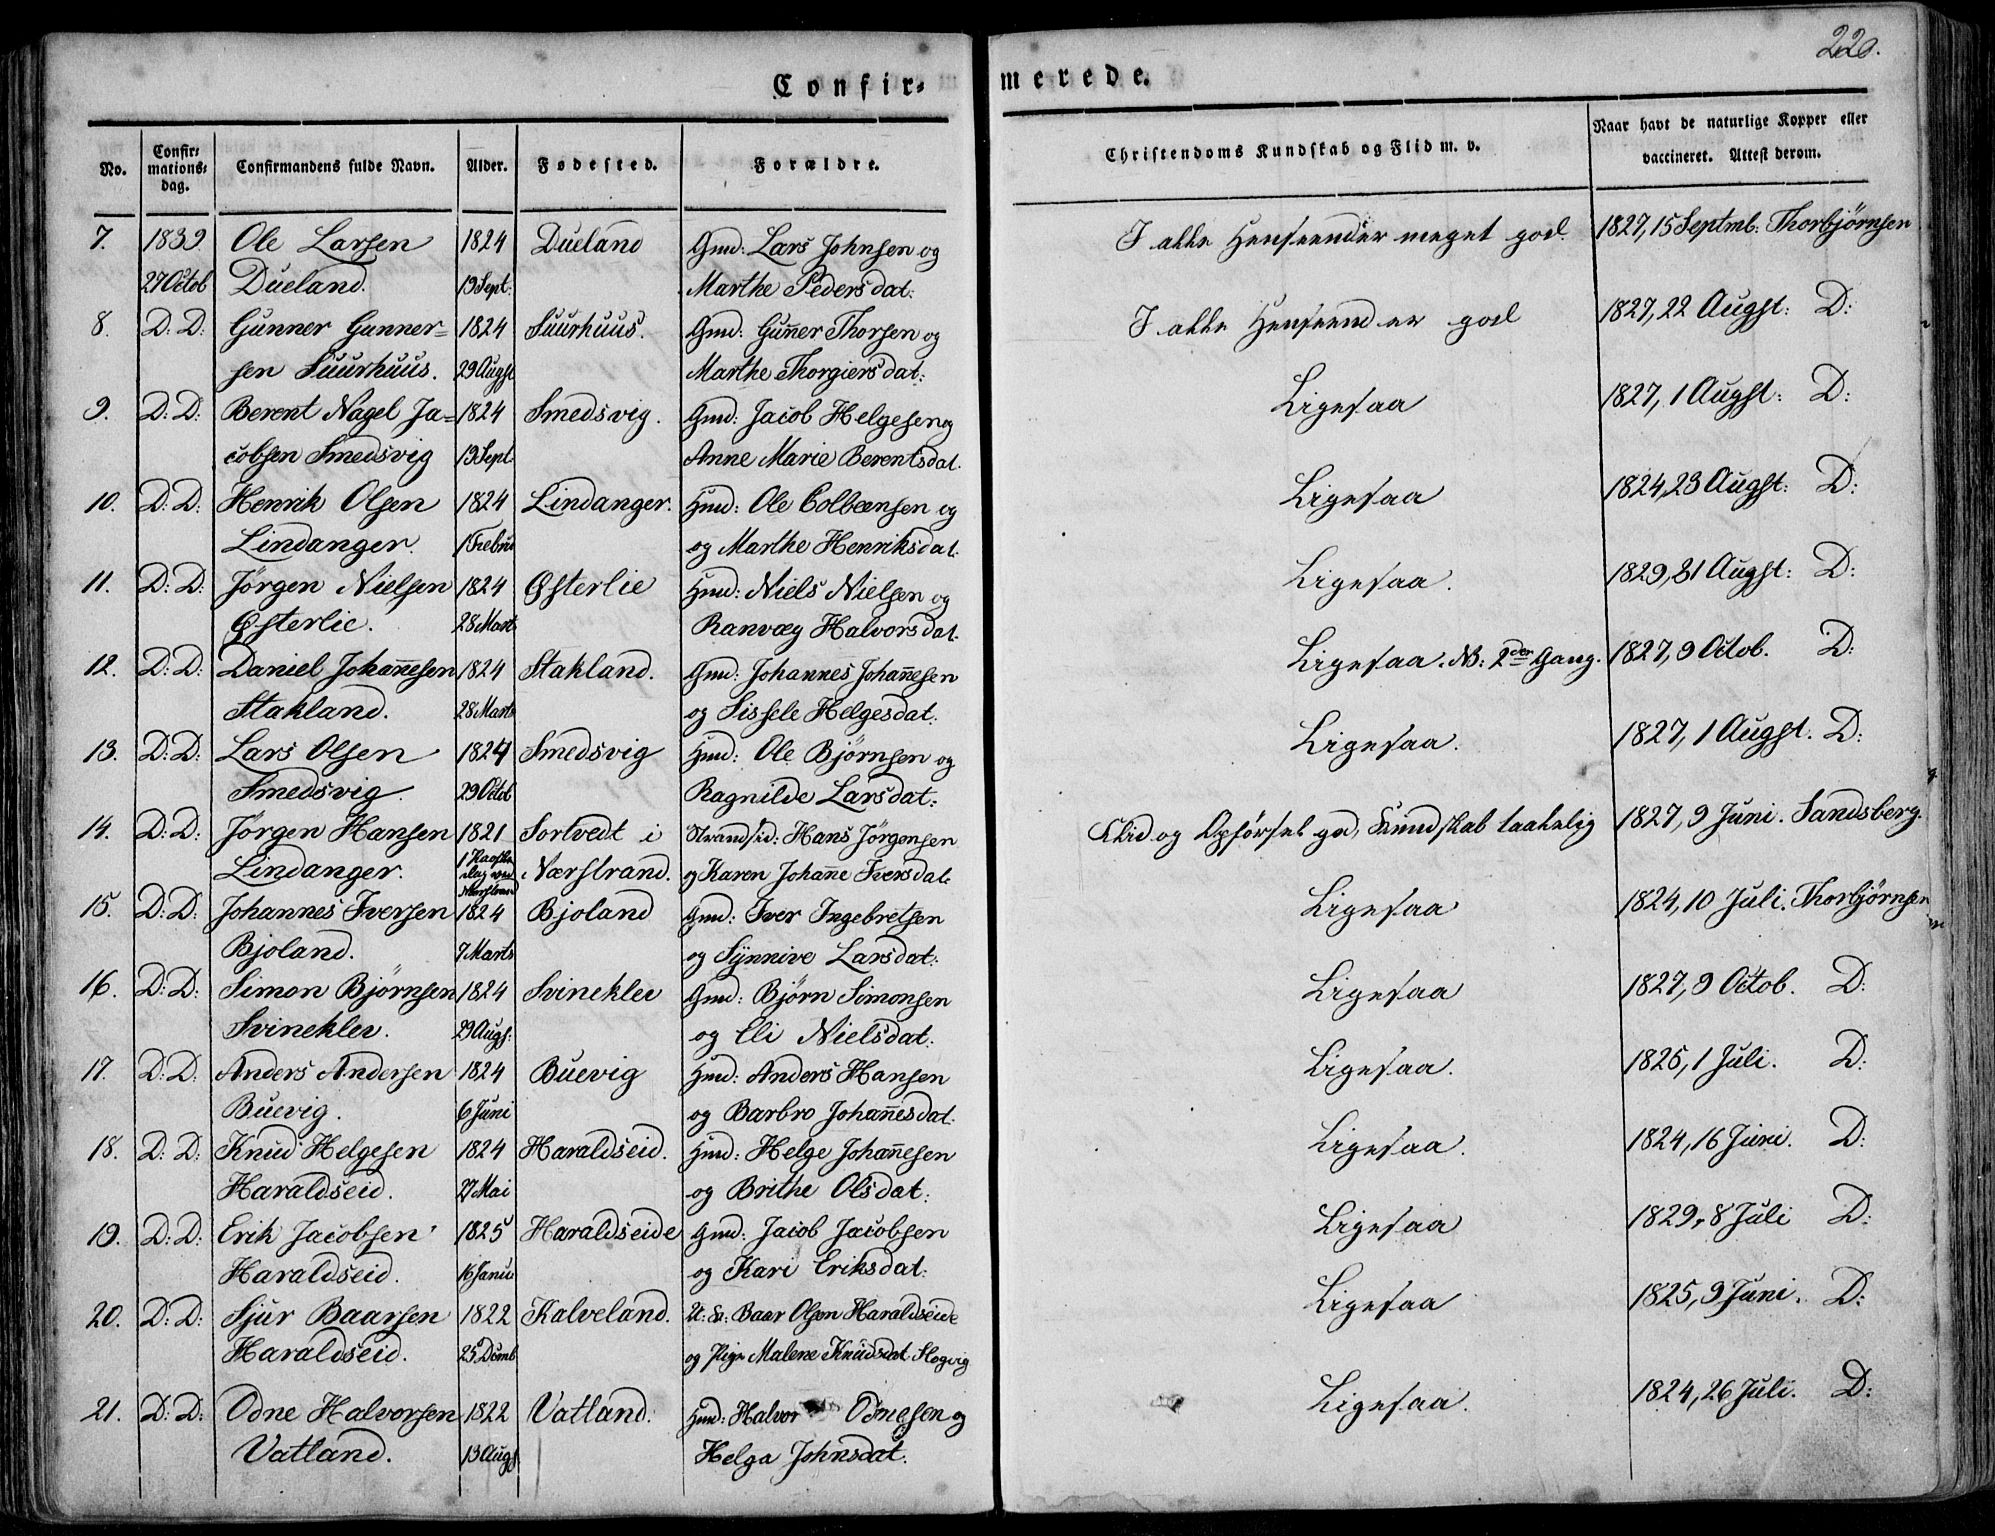 220.
Confir- merede.
No. Confir-mations-dag. Confirmandens fulde Navn. Alder. Fødested. Forældre. Christendoms Kundskab og Flid m. v. Naar havt de naturlige Kopper eller vaccineret. Attest derom.
7. 1839. Ole Larsen 1824 Dueland Gmd: Lars Johnsen og I alle Henseender meget god. 1827, 15 Septmb: Thorbjørnsen
27 Octob Dueland. 19 Sept: Marthe Pedersdat:
8. D: D: Gunner Gunner= 1824 Suurhuus. Gmd: Guñer Thorsen og I alle Henseender god 1827, 22 Augst: D:
sen Suurhuus. 29 Augst Marthe Thorgiersdat:
9. D: D: Berent Nagel Ja= 1824 Smedsvig. Gmd: Jacob Helgesen og Ligesaa 1827, 1 Augst: D:
cobsen Smedsvig 19 Sept: Anne Marie Berentsdat.
10. D: D: Henrik Olsen 1824 Lindanger. Hmd: Ole Colbeensen og Ligesaa 1824, 23 Augst: D:
Lindanger. 1 Febru og Marthe Henriksdat.
11. D: D: Jørgen Nielsen 1824 Østerlie Hmd: Niels Nielsen og Ligesaa. 1829, 31 Augst: D:
Østerlie. 28 Marts Ranvæg Halvorsdat.
12. D: D: Daniel Johañesen 1824 Stakland. Gmd: Johannes Johañesen Ligesaa. NB: 2den Gang. 1827, 9 Octob. D:
Stakland. 28 Marts og Sissele Helgesdat.
13. D: D: Lars Olsen 1824 Smedsvig Hmd: Ole Bjørnsen og Ligesaa. 1827, 1 Augst. D:
Smedsvig. 29 Octob Ragnilde Larsdat:
14. D: D: Jørgen Hansen 1821 Sortvedt i Strandsid: Hans Jørgensen Flid og Opførsel god, Kundskab taalelig 1827, 9 Juni. Sandsberg.
Lindanger. Nærstrand. og Karen Johañe Iversdat.
15. D: D: Johannes Iversen 1824 Bjoland Gmd: Iver Ingebretsen Ligesaa 1824, 10 Juli. Thorbjørnsen
Bjoland. 7 Marts og Synnive Larsdat:
16. D: D: Simon Bjørnsen 1824 Svineklev Gmd: Bjørn Simonsen Ligesaa 1827, 9 Octob. D:
Svineklev. 29 Augs: og Eli Nielsdat:
17. D: D: Anders Andersen 1824 Buevig Hmd: Anders Hansen Ligesaa. 1825, 1 Juli. D:
Buevig. 6 Juni og Barbro Johañesdat.
18. D: D: Knud Helgesen 1824 Haraldseid. Hmd: Helge Johañesen Ligesaa. 1824, 16 Juni. D:
Haraldseid. 27 Mai og Brithe Olsdat:
19. D: D: Erik Jacobsen 1825 Haraldseide Gmd: Jacob Jacobsen Ligesaa 1829, 8 Juli D:
Haraldseid. 16 Janu og Kari Eriksdat:
20. D: D: Sjur Baarsen 1822 Kalveland. Baar Olsen Haraldseide Ligesaa 1825, 9 Juni. D:
Haraldseid. 25 Dcmb og Pige Malene Knudsdat Slogvig
21. D: D: Odne Halvorsen 1822 Vatland. Hmd: Halvor Odnesen og Ligesaa. 1824, 26 Juli. D:
Vatland. 13 Augs Helga Johnsdat.